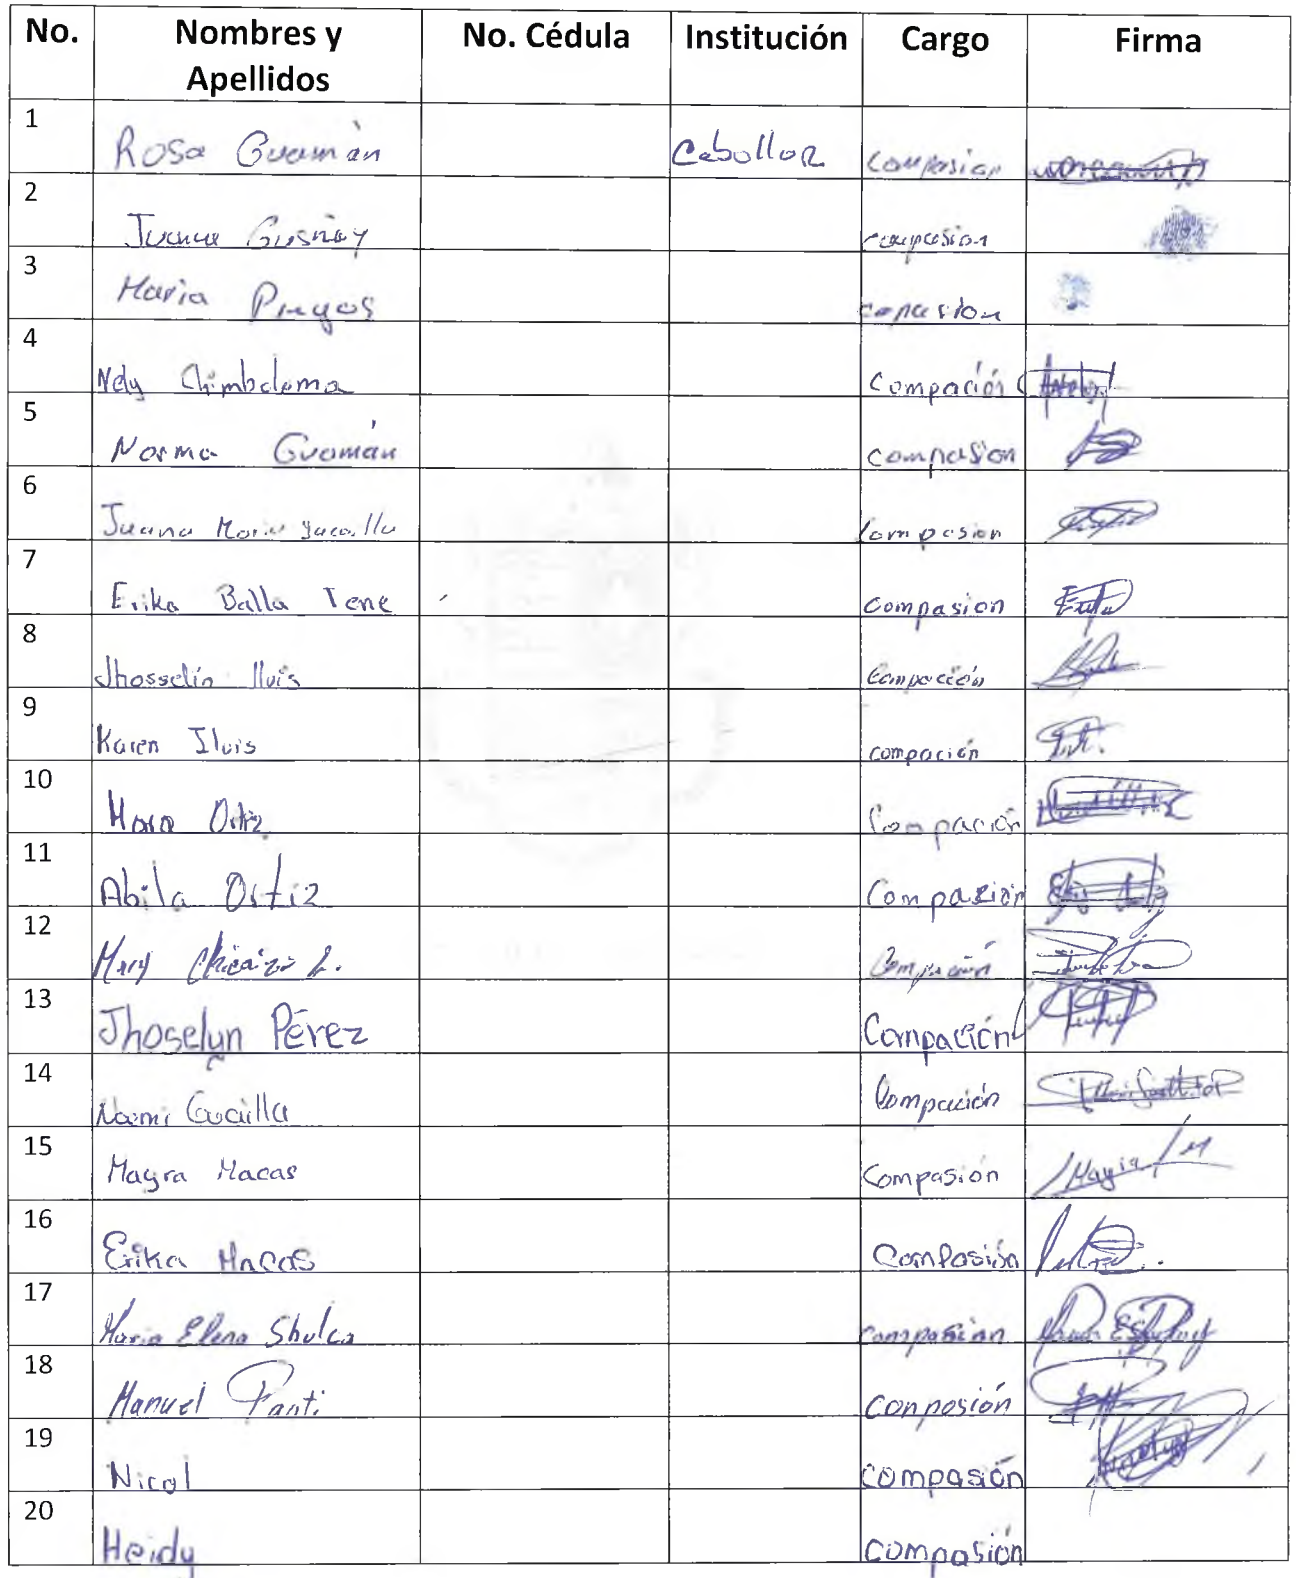 No. Nombres y Apellidos No. Cédula Institución Cargo Firma
1 Rosa Guamán Cebollar compasion
2 Juana Gusñay compasion
3 Maria Pugos compasion
4 Nely Chimbolema Compación
5 Norma Guamán compasion
6 Juana Maria compasion
7 Erika Balla Tene compasion Erika
8 Jhosselin Iluis Compación
9 Karen Iluis compación
10 Ortiz Compación
11 Abila Ortiz Compazion
12 Mary Compación
13 Jhoselyn Pérez Compación
14 Noemi Guailla Compación
15 Mayra Macas Compasión Mayra
16 Erika Macas Compasión
17 Maria Elena Shulca compasion
18 Manuel Panti Conpasión
19 Nicol compasión
20 Heidy compasión